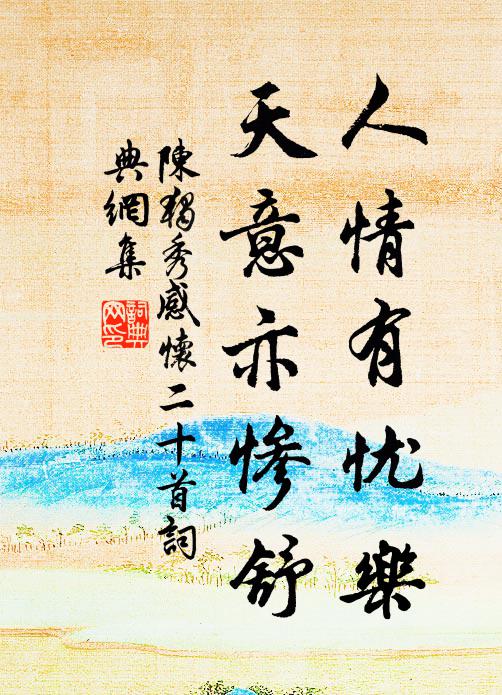 人情有忧樂
天意亦慘舒
陳獨秀感懷二十首詞
典網集
詞典
网印